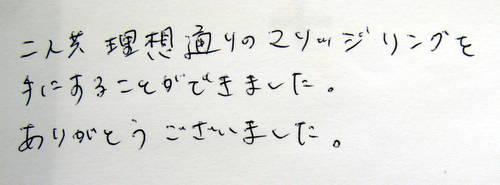 二人共 理想通りのマリッジリングを
手にすることができました。
ありがとうございました。